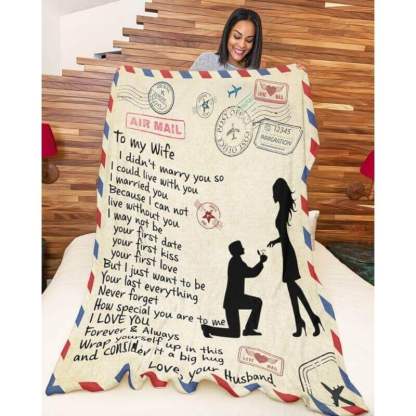 AIR MAIL
LOVE MAIL
POST OFFICE
POST OFFICE
12345
IMMIGRATION
To my Wife
I didn't marry you so
I could live with you
I married you
Because I can not
live without you
I may not be
your first date
your first kiss
your first love
But I just want to be
Your last everything
Never forget
How special you are to me
I LOVE YOU
Forever & Always
Wrap yourself up in this
and CONSIDER it a big hug
Love, your Husband